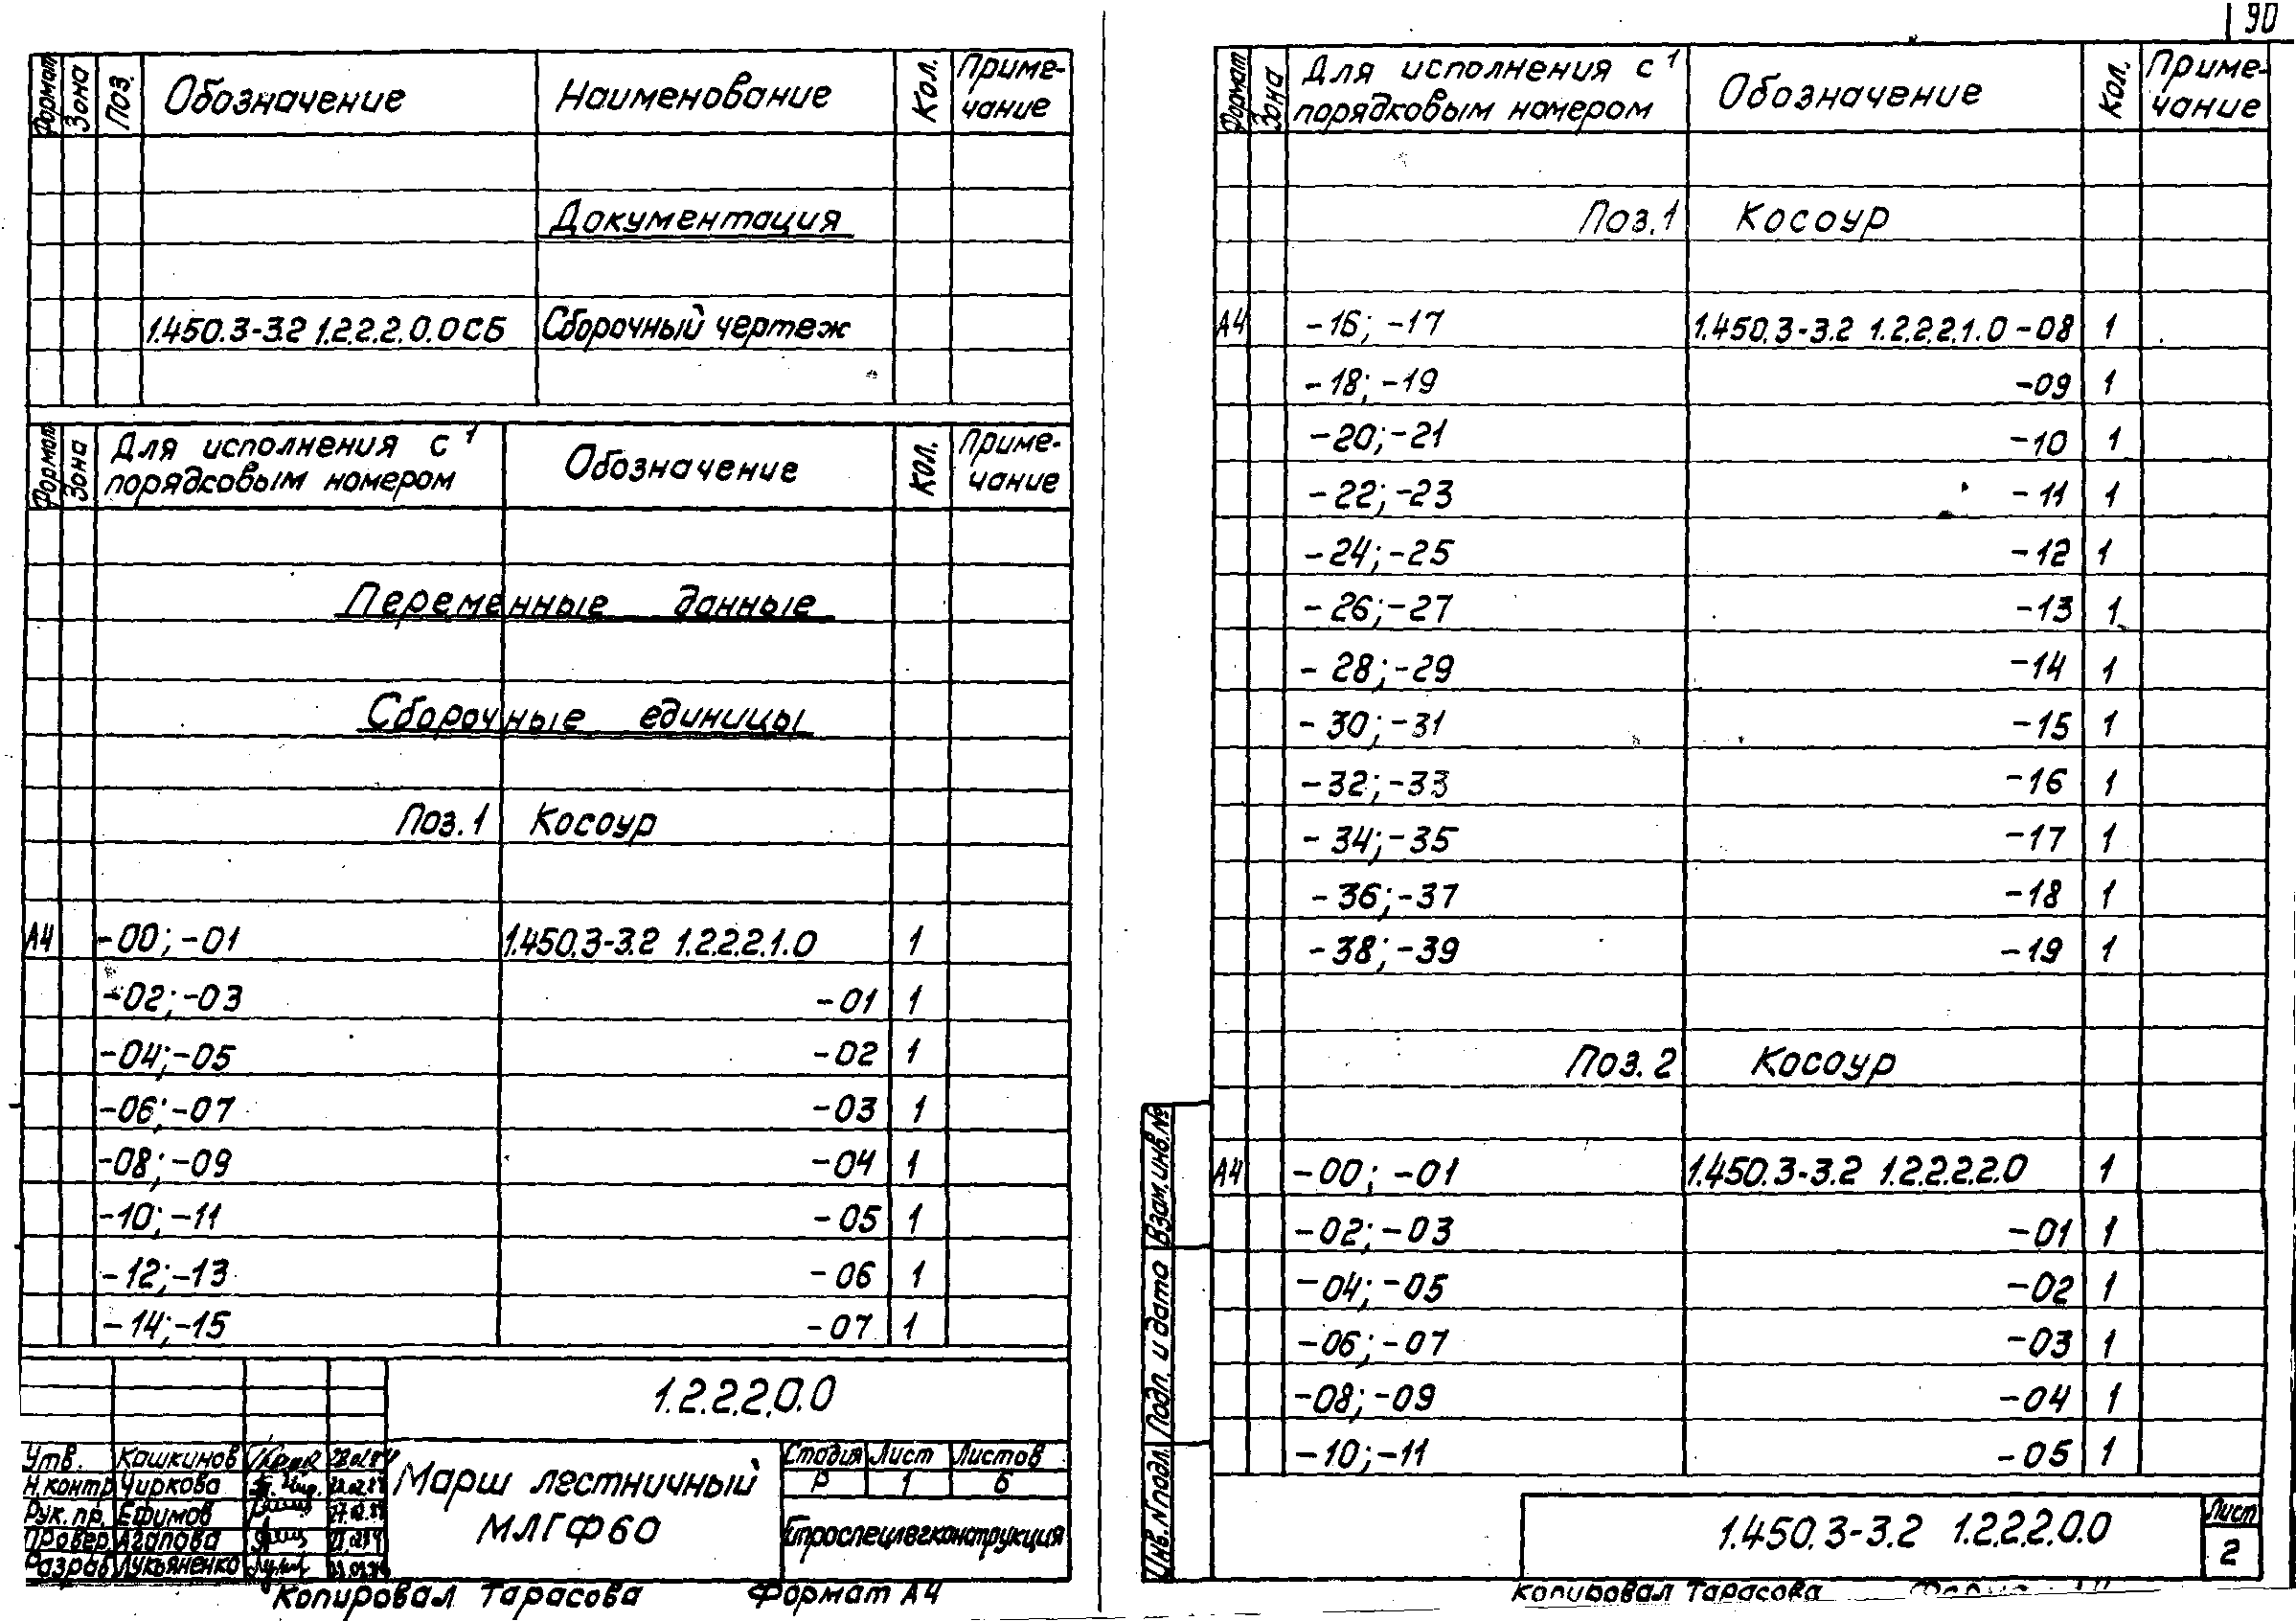 90
Формат Зона Поз. Обозначение Наименование Кол. Приме-
чание
Документация
1.450.3-3.2 1.2.2.2.0.0СБ Сборочный чертеж
Формат Зона Для исполнения с 1
порядковым номером Обозначение Кол. Приме-
чание
Переменные данные
Сборочные единицы
Поз.1 Косоур
А4 -00; -01 1.450.3-3.2 1.2.2.2.1.0 1
-02; -03 -01 1
-04; -05 -02 1
-06; -07 -03 1
-08; -09 -04 1
-10; -11 -05 1
-12; -13 -06 1
-14; -15 -07 1
1.2.2.2.0.0
Утв. Кашкинов
Н.контр Чиркова
Рук.пр. Ефимов
Провер Агапова
Разраб Лукьяненко
Марш лестничный
МЛГФ60
Стадия Лист Листов
Р 1 6
Копировал Тарасова Формат А4
Формат Зона Для исполнения с 1
порядковым номером Обозначение Кол. Приме-
чание
Поз.1 Косоур
А4 -16; -17 1.450.3-3.2 1.2.2.2.1.0-08 1
-18; -19 -09 1
-20; -21 -10 1
-22; -23 -11 1
-24; -25 -12 1
-26; -27 -13 1
-28; -29 -14 1
-30; -31 -15 1
-32; -33 -16 1
-34; -35 -17 1
-36; -37 -18 1
-38; -39 -19 1
Поз.2 Косоур
А4 -00; -01 1.450.3-3.2 1.2.2.2.2.0 1
-02; -03 -01 1
-04; -05 -02 1
-06; -07 -03 1
-08; -09 -04 1
-10; -11 -05 1
Инв.Nподл. Подп. и дата Взам.инв.№
1.450.3-3.2 1.2.2.2.0.0
Лист
2
Копировал Тарасова